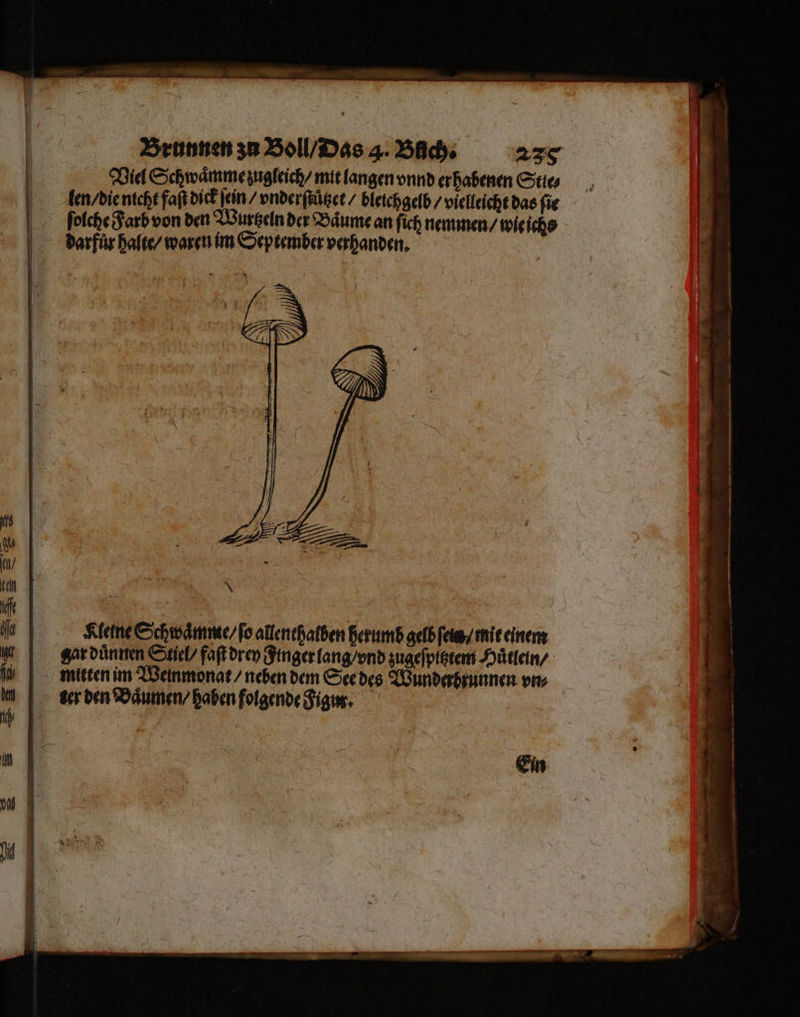 Brunnen zu Boll/Das 4. Bůch. 235
Viel Schwaͤmme zugleich/ mit langen vnnd erhabenen Stie⸗
len/die nicht faſt dick ſein / vnderſtuͤtzet / bleichgelb / vielleicht das ſie
ſolche Farb von den Wurtzeln der Baͤume an ſich nemmen / wie ichs
darfuͤr halte/ waren im September verhanden.
Kleine Schwaͤmme/ ſo allenthalben herumb gelb ſein/ mit einem
gar duͤnnen Stiel/ faſt drey Finger lang/ vnd zugeſpitztem Huͤtlein/
mitten im Weinmonat / neben dem See des Wunderbrunnen vn⸗
ter den Baͤumen/ haben folgende Figur.
Ein